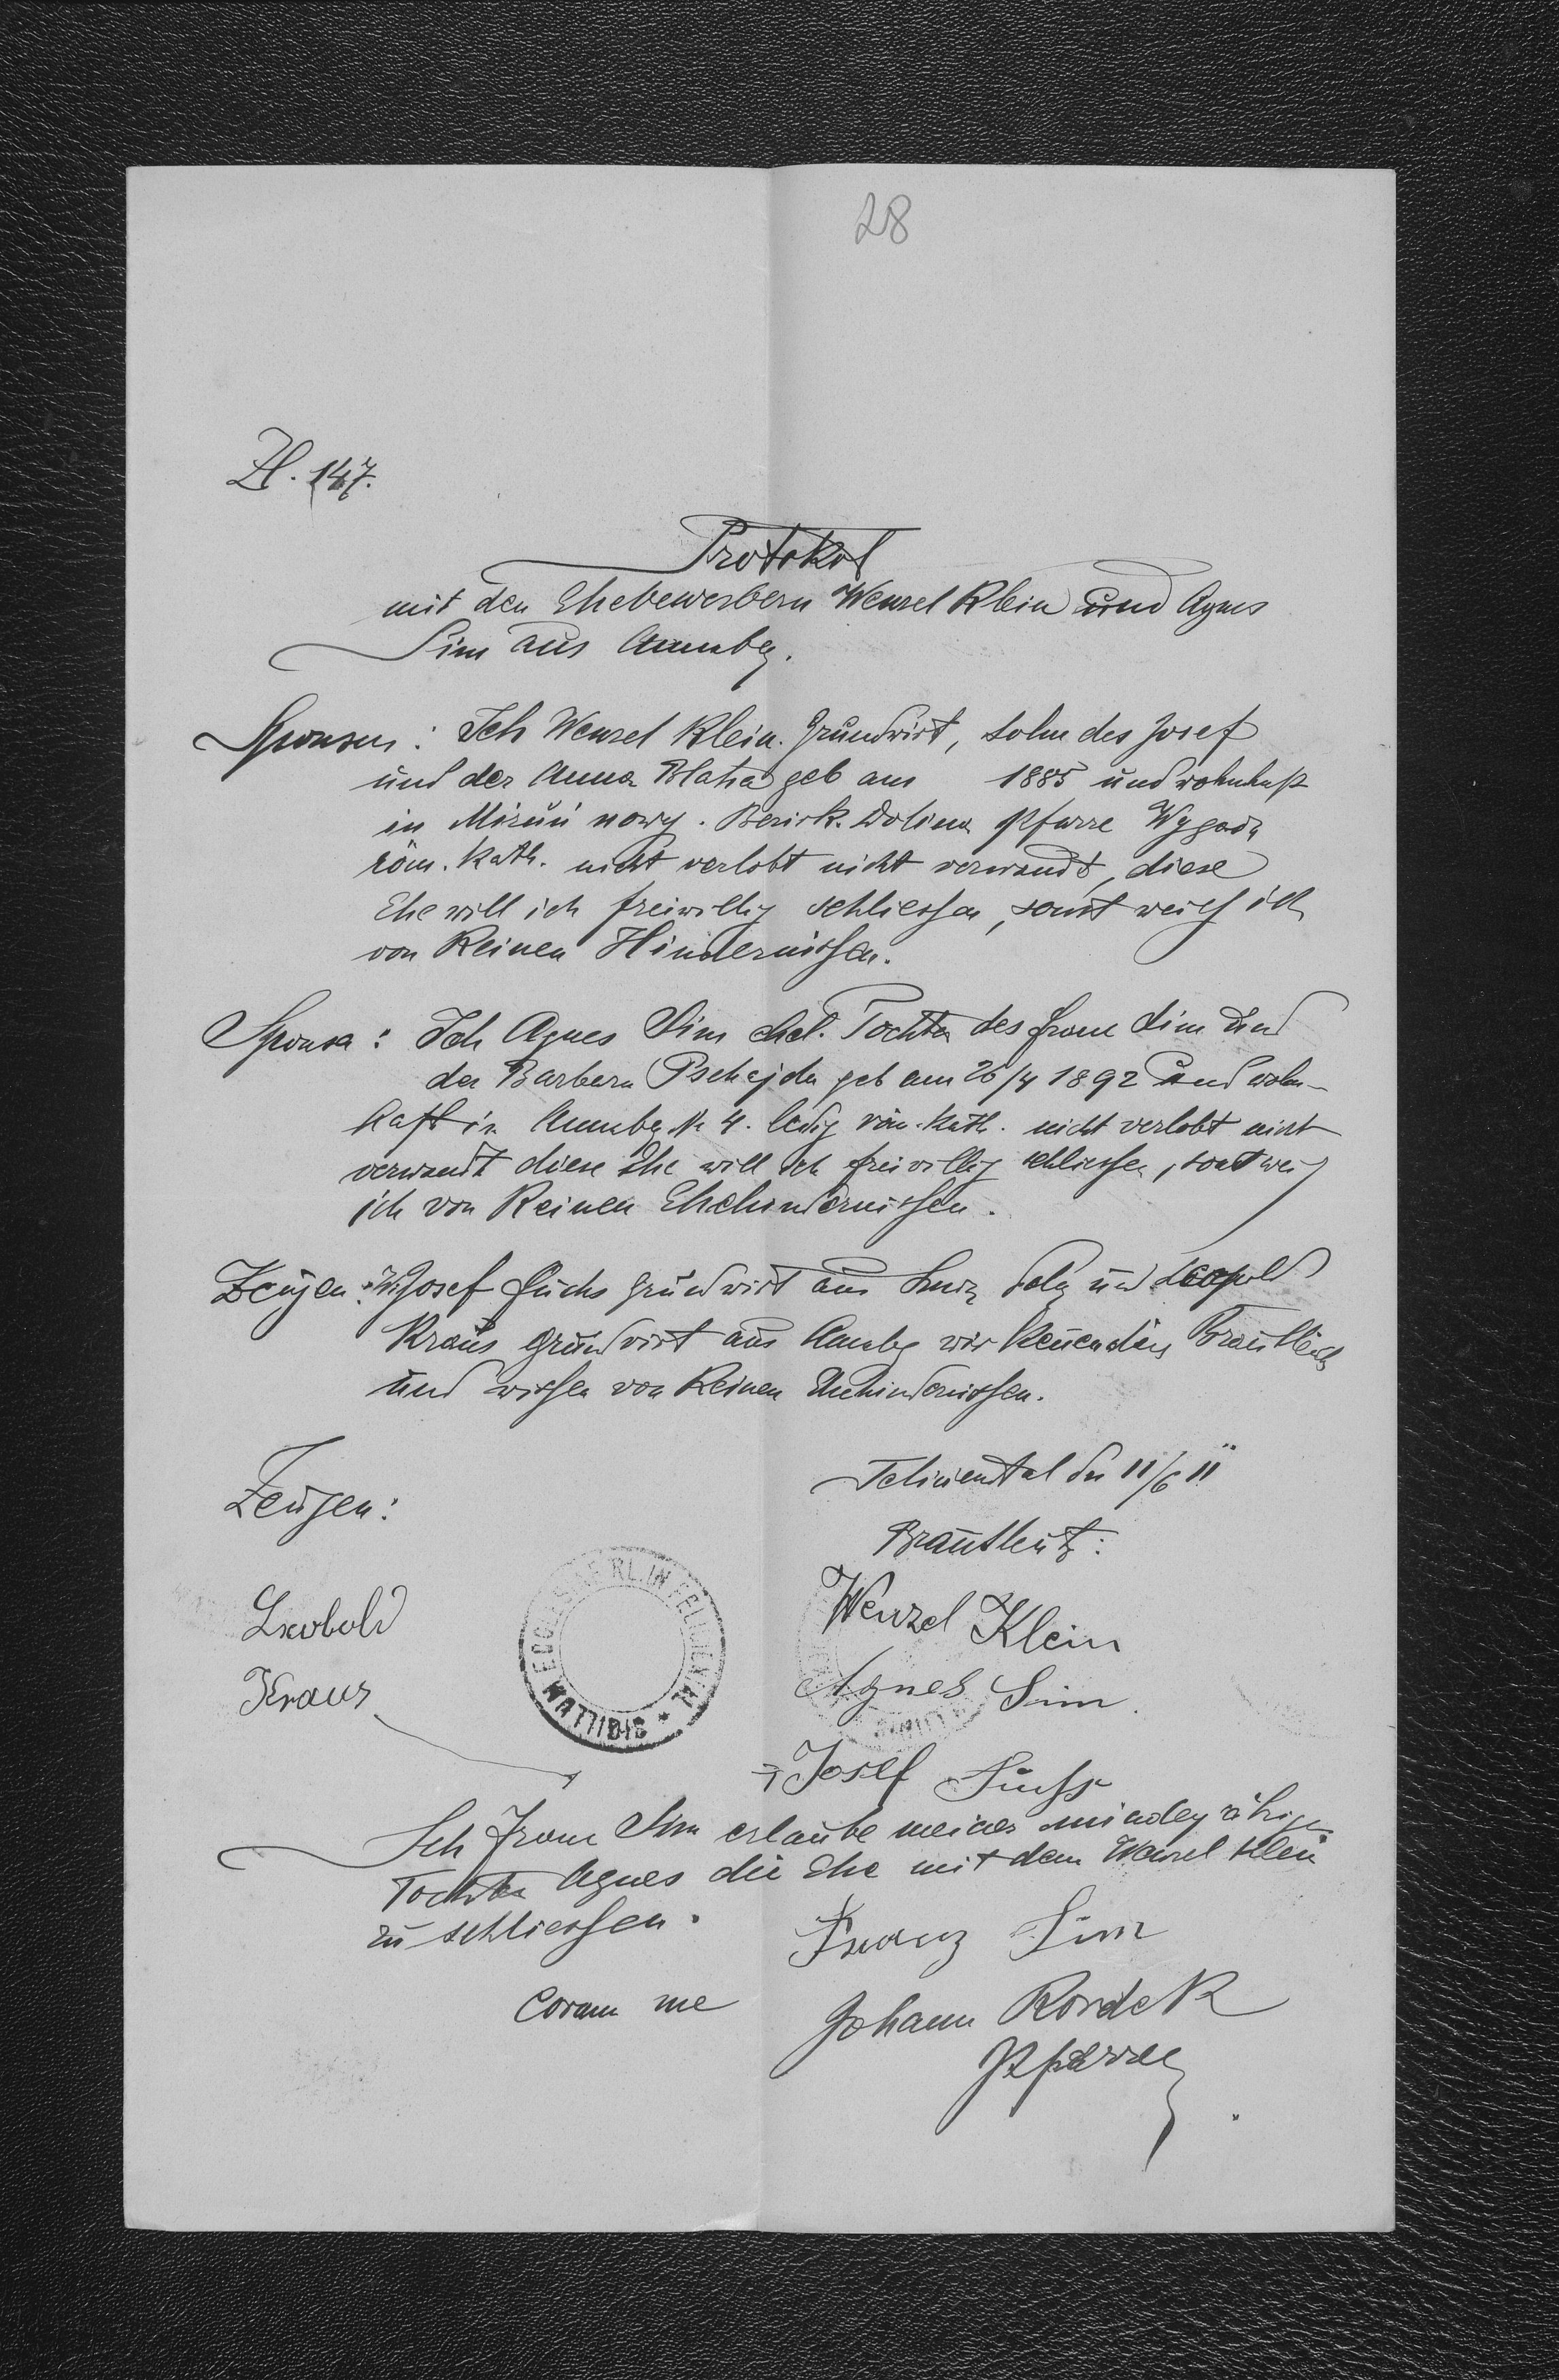 28
Zl. 147.
Protokol
mit den Ehebewerbern Wenzel Klein und Agnes
Sim aus Annabg.
Sponsus: Ich Wenzel Klein. Grundwirt, sohn des Josef
und der Anna Blaha geb am 1885 und wohnhaft
in Mizuń nowy. Bezirk. Dolina Pfarre Wygoda
röm. Kath. nicht verlobt nicht verwandt, diese
Ehe will ich freiwillig schliessen, sonst weiss ich
von Keinen Hindernissen.
Sponsa: Ich Agnes Sim ehel. Tochter des Franz Sim und
der Barbara Pschejda geb am 26/4 1892 und wohn-
haft in Annabg N 4. ledig röm. Kath. nicht verlobt nicht
verwandt diese Ehe will ich freiwillig schliessen, sonst weis
ich von Keinen Ehehindernissen.
Zeugen: Josef Fuchs Grundwirt aus und Leopold
Kraus Grundwirt aus Annabg wir Kennen Brautleute
und wissen von Keinen Ehehindernissen.
Zeugen:
Felizienthal den 11/6 11
Brautleute:
Leobold
Kraus
ECCLESIAE RL. IN FELICIENTAL * MATTIDIS
Wenzel Klein
Agnes Sim.
Josef Fuchs
Ich Franz Sim erlaube meiner minderjährigen
Tochter Agnes die Ehe mit dem Wenzel Klein
zu schliessen.
Franz Sim
Coram me
Johann Rondek
Pfarrer